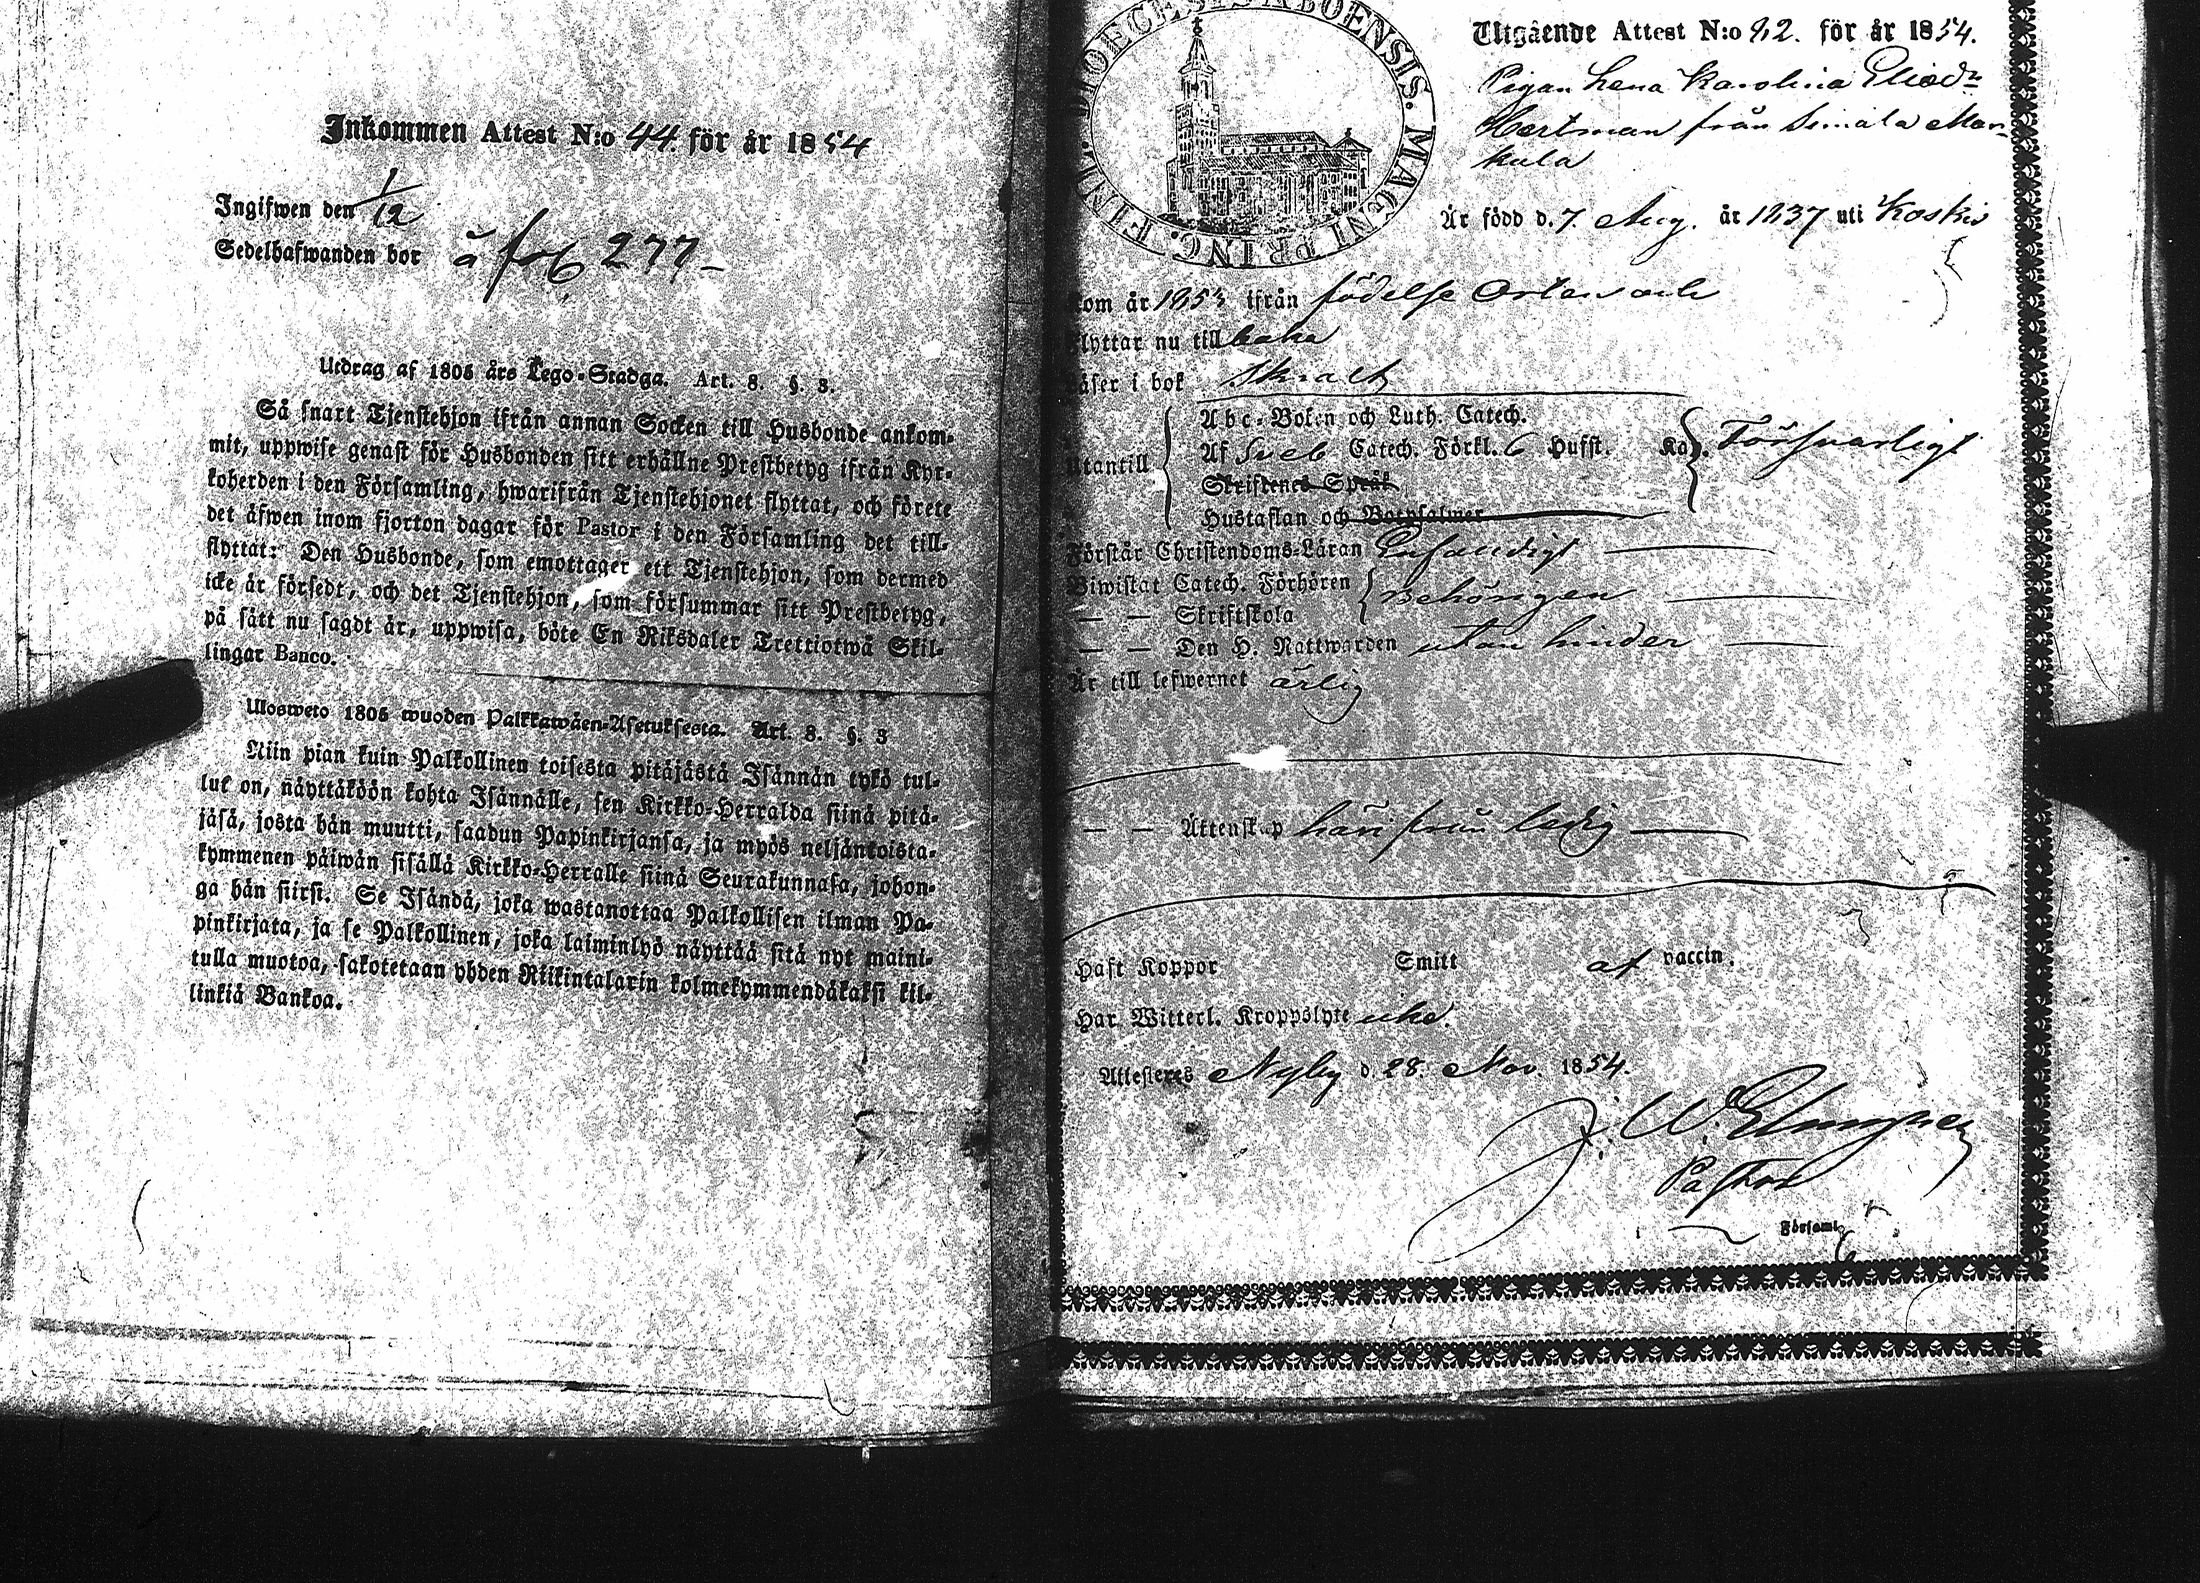 Inkommen Attest N:o 44. för år 1854
Ingifwen den 1/12
Sedelhafwanden bor å fol 277 –
Utdrag af 1805 års Lego-Stadga. Art. 8. §. 3.
Så snart Tjenstehjon ifrån annan Socken till Husbonde ankom-
mit, uppwise genast för Husbonden sitt erhållne Prestbetyg ifrån Kyr-
koherden i den Församling, hwarifrån Tjenstehjonet flyttat, och förete
det äfwen inom fjorton dagar för Pastor i den Församling det till-
flyttat: Den Husbonde, som emottager ett Tjenstehjon, som dermed
icke är försedt, och det Tjenstehjon, som försummar sitt Prestbetyg,
på sätt nu sagdt är, uppwisa, böte En Riksdaler Trettiotwå Skil-
lingar Banco.
Ulosweto 1805 wuoden Palkkawäen-Asetuksesta. Art. 8. §. 3
Niin pian kuin Palkollinen toisesta pitäjästä Isännän tykö tul-
lut on, näyttäköön kohta Isännälle, sen Kirkko-Herralda siinä pitä-
jäsä, josta hän muutti, saadun Papinkirjansa, ja myös neljäntoista-
kymmenen päiwän sisällä Kirkko-Herralle siinä Seurakunnasa, johon-
ga hän siirsi. Se Isändä, joka wastanottaa Palkollisen ilman Pa-
pinkirjata, ja se Palkollinen, joka laiminlyö näyttää sitä nyt maini-
tulla muotoa, sakotetaan yhden Riikintalarin kolmekymmendäkaksi kil-
linkiä Bankoa.
DIOECESIS ABOENSIS. MAGNI PRINC. FINL.
Utgående Attest N:o 92. för år 1854.
Pigan Lena Karolina Eliæ dr
Hartman från Simala Mar-
kula
Är född d. 7. Aug. år 1837 uti Koskis
kom år 1853 ifrån födelse Orten och
flyttar nu tillbaka
Läser i bok Skralt
Abc-Boken och Luth. Catech.
Utantill Af Sveb Catech. Förkl. 6 Hufst. Ka). Försvarligt
Skriftenes Språk
Hustaflan och Botpsalmer
Förstår Christendoms-Läran Enfaldigt
Biwistat Catech. Förhören behörigen
— — Skriftskola
— — Den H. Nattwarden utan hinder
Är till lefwernet ärlig
— — Äktenskap härifrån ledig
Haft Koppor Smitt af vaccin.
Har Witterl. Kroppslyte icke.
Attesteres Nyby d. 28. Nov. 1854.
J. W. Elmgren
Pastor
i Församl